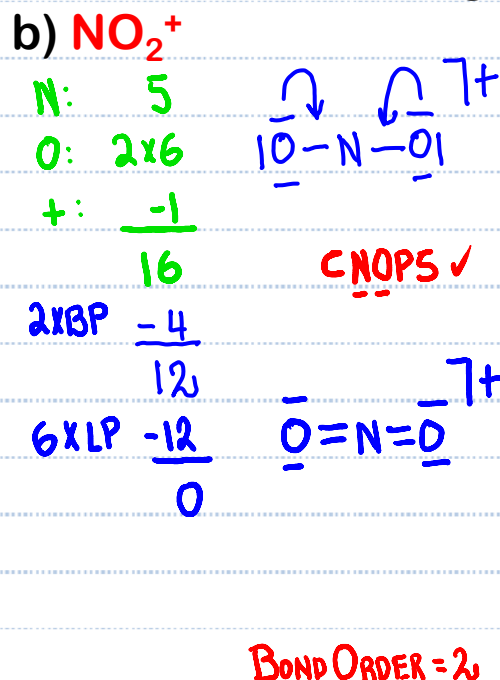 b) NO₂⁺
N: 5
O: 2x6
+: -1
16
2xBP -4
12
6xLP -12
0
|O-N-O| ⌉+
CNOPS ✓
O=N=O ⌉+
BOND ORDER = 2